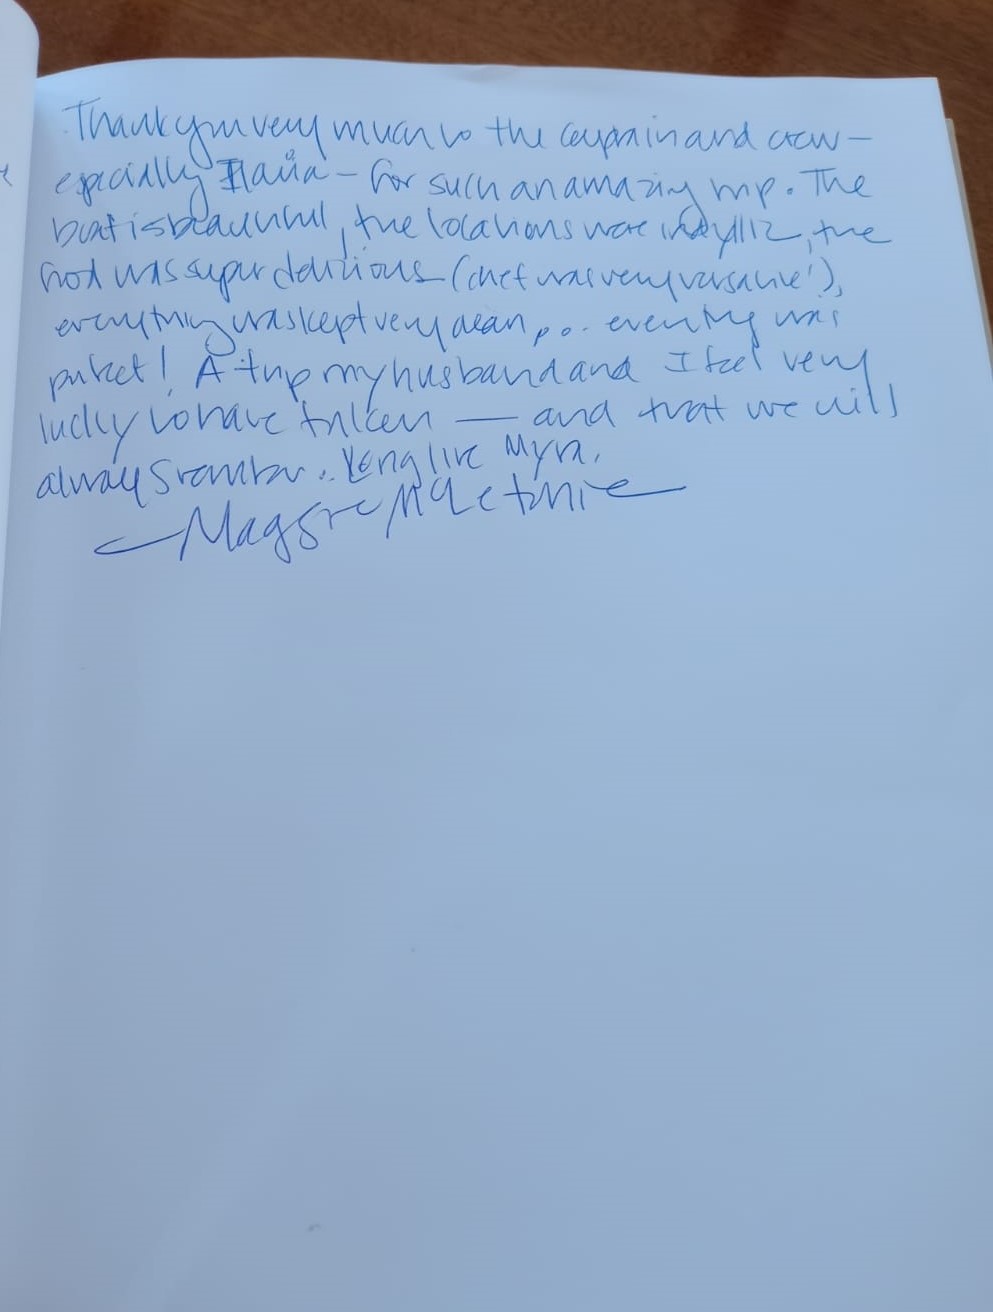 Thank you very much to the captain and crew —
especially — for such an amazing trip. The
boat is beautiful, the locations were idyllic, the
food was super delicious (chef was very versatile!),
everything was kept very clean, ... everything was
perfect! A trip my husband and I feel very
lucky to have taken — and that we will
always remember. Long live Myra.
— Maggie